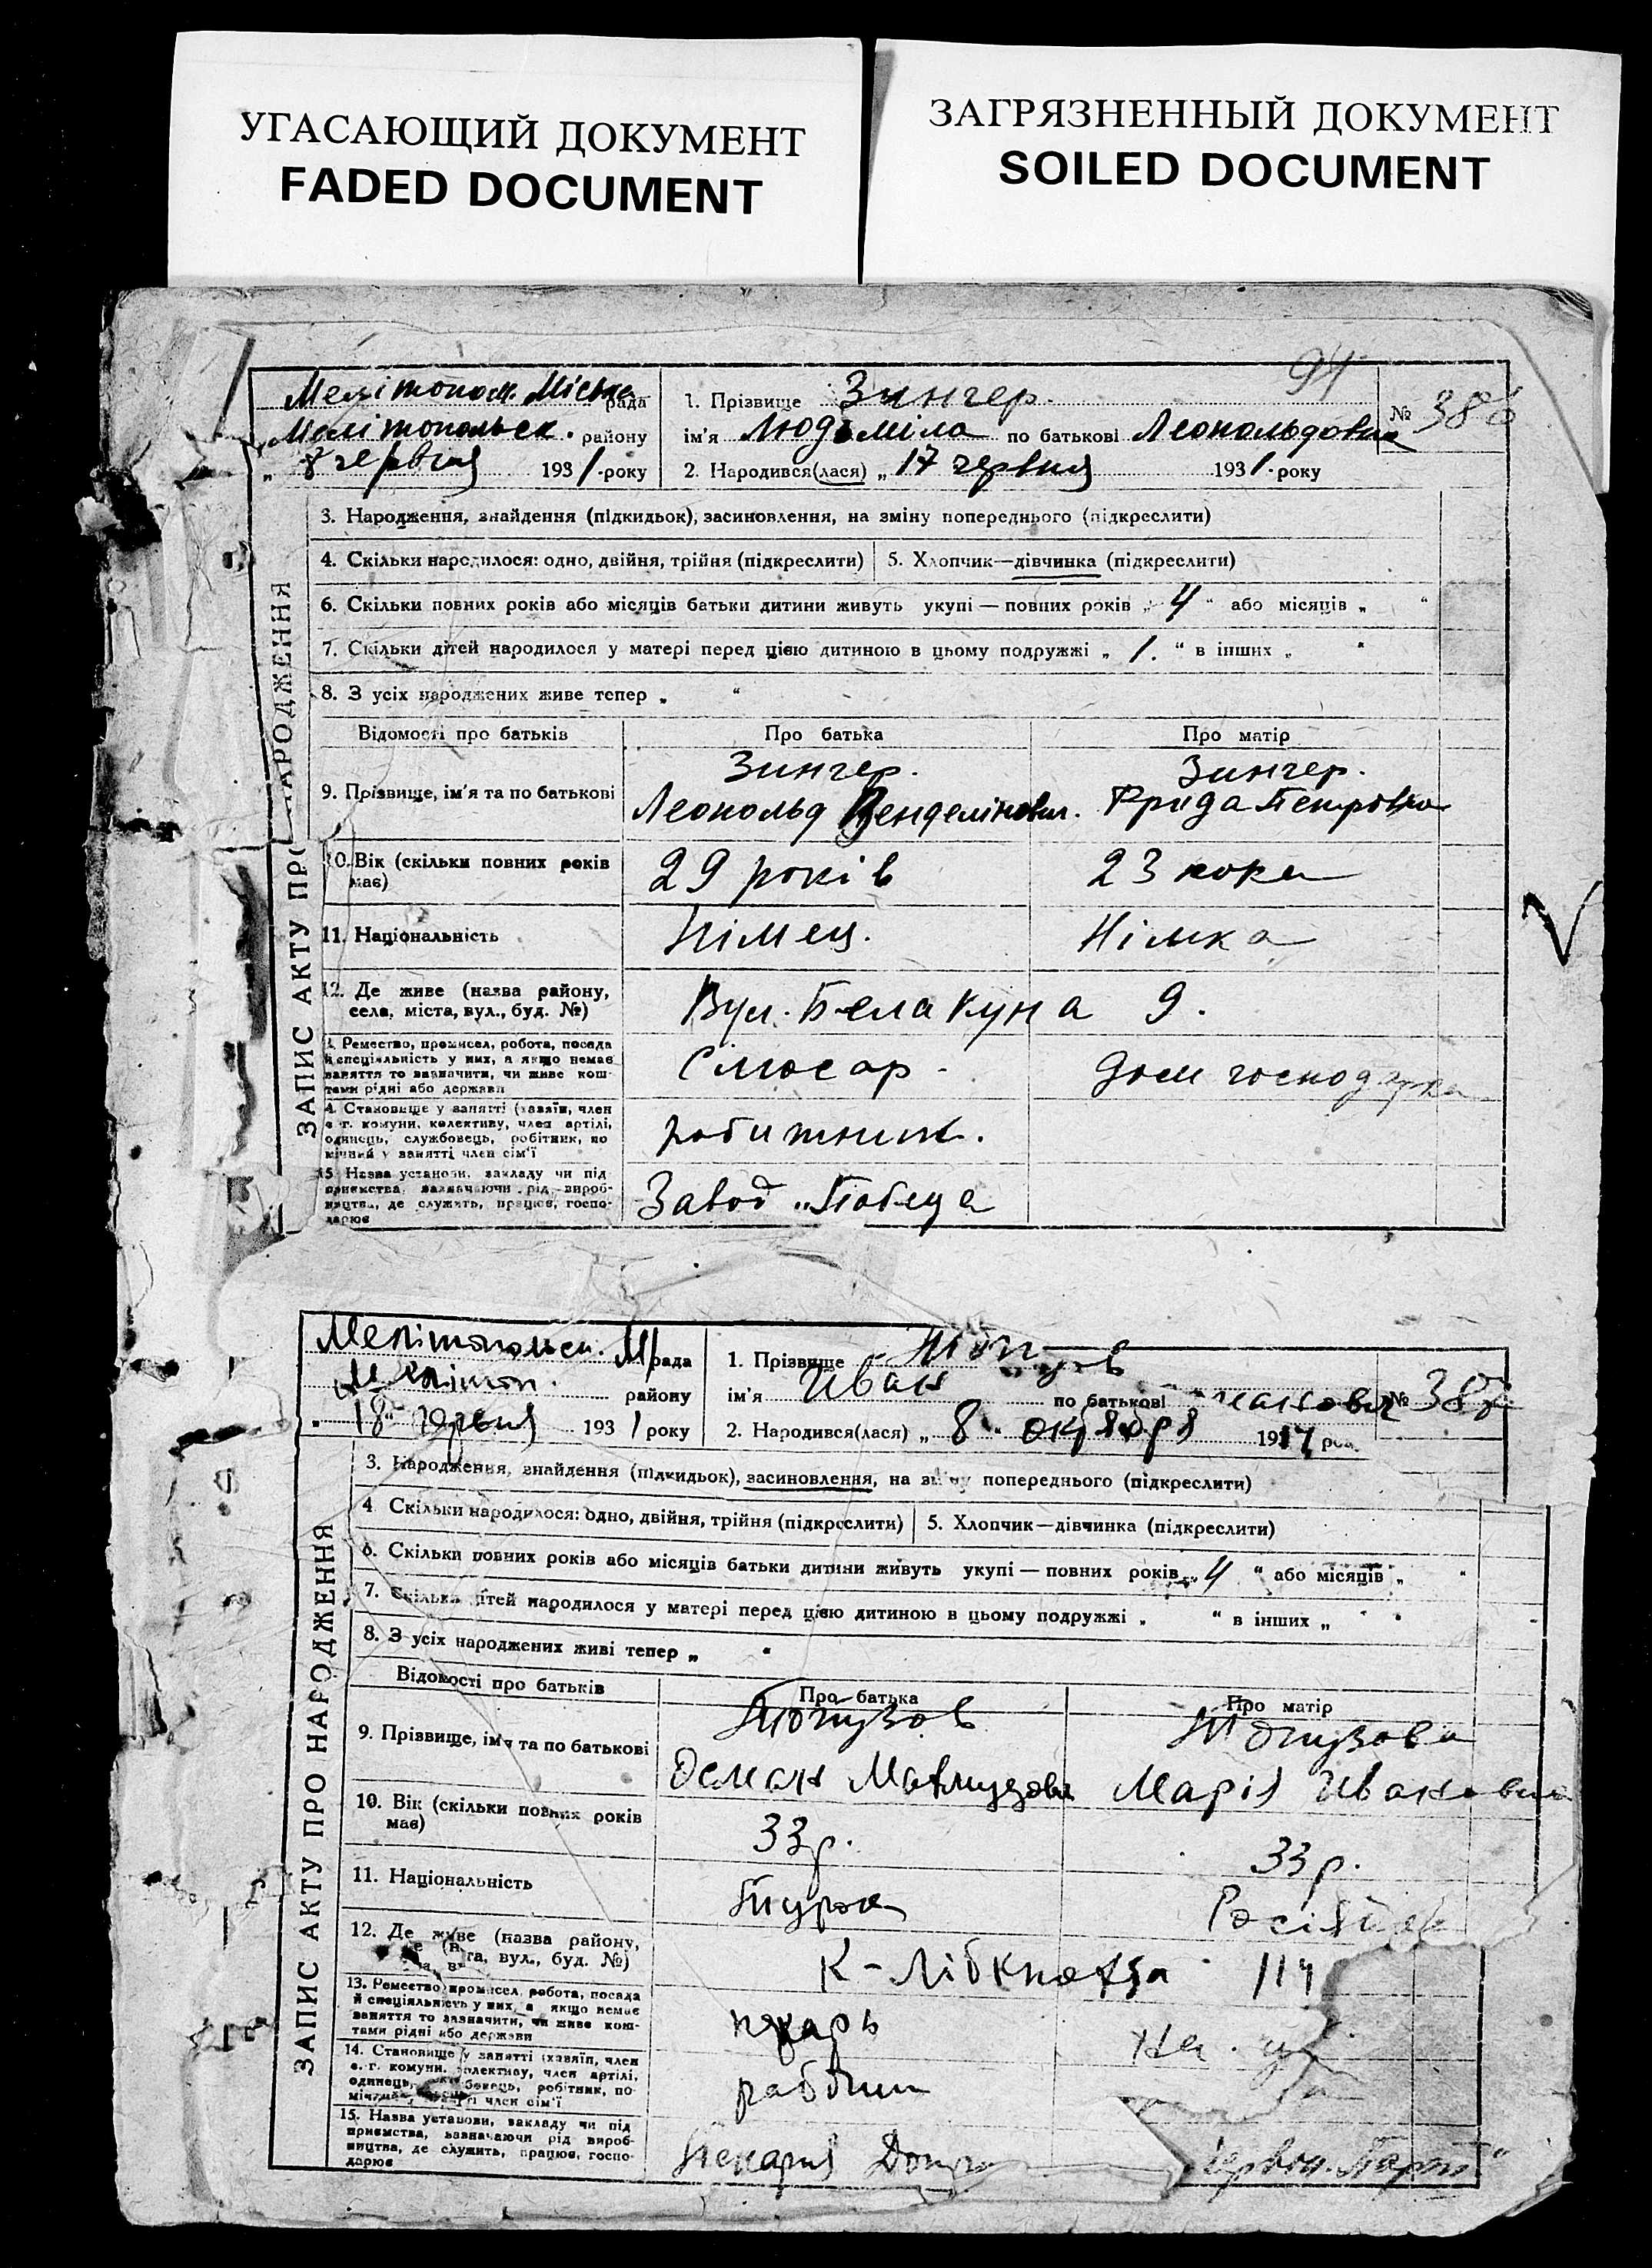 УГАСАЮЩИЙ ДОКУМЕНТ
FADED DOCUMENT
ЗАГРЯЗНЕННЫЙ ДОКУМЕНТ
SOILED DOCUMENT
94
Мелітопол. Міська рада
Мелітопольск. району
„ 8 червня 1931 року
1. Прізвище Зингер.
ім'я Людміла по батькові Леопольдовна
2. Народився(лася) „ 17 червня 1931. року
№ 386
ЗАПИС АКТУ ПРО НАРОДЖЕННЯ
3. Народження, знайдення (підкидьок), засиновлення, на зміну попереднього (підкреслити)
4. Скільки народилося: одно, двійня, трійня (підкреслити)
5. Хлопчик—дівчинка (підкреслити)
6. Скільки повних років або місяців батьки дитини живуть укупі — повних років „ 4 “ або місяців „ “
7. Скільки дітей народилося у матері перед цією дитиною в цьому подружжі „ 1. “ в інших „ “
8. З усіх народжених живе тепер „ “
Відомості про батьків
Про батька
Про матір
9. Прізвище, ім'я та по батькові
Зингер.
Леопольд Венделінович.
Зингер.
Фрида Петровна
10. Вік (скільки повних років
має)
29 років
23 роки
11. Національність
Німец.
Німка
12. Де живе (назва району,
села, міста, вул., буд. №)
Вул. Бела Куна 9.
13. Ремество, промисел, робота, посада
й спеціяльність у них, а якщо немає
заняття то зазначити, чи живе кош-
тами рідні або держави
Слюсар.
Дом господарка
14. Становище у занятті (хазяїн, член
с.-г. комуни, колективу, член артілі,
одинець, службовець, робітник, по
мічний у занятті член сім'ї
робитник.
15. Назва установи, закладу чи під
приємства, зазначаючи рід вироб-
ництва, де служить, працює, госпо-
дарює
Завод „Победа
Мелітопольск. М/рада
Меліtоп. району
„ 18 “ червня 1931 року
1. Прізвище
ім'я Иван по батькові
2. Народився(лася) „ 8 “ октября
№ 387
ЗАПИС АКТУ ПРО НАРОДЖЕННЯ
3. Народження, знайдення (підкидьок), засиновлення, на зміну попереднього (підкреслити)
4. Скільки народилося: одно, двійня, трійня (підкреслити)
5. Хлопчик—дівчинка (підкреслити)
6. Скільки повних років або місяців батьки дитини живуть укупі — повних років „ 4 “ або місяців „ “
7. Скільки дітей народилося у матері перед цією дитиною в цьому подружжі „ “ в інших „ “
8. З усіх народжених живі тепер „ “
Відомості про батьків
Про батька
Про матір
9. Прізвище, ім'я та по батькові
Топузов
Осман Махмудови
Топузова
Марія Ивановна
10. Вік (скільки повних років
має)
33 р.
33 р.
11. Національність
Турок
12. Де живе (назва району,
вул., буд. №)
К-Лібкнехта 114
13. Ремество, промисел, робота, посада
й спеціяльність у них, а якщо немає
заняття то зазначити, чи живе кош-
тами рідні або держави
пекарь
14. Становище у занятті (хазяїн, член
с.-г. комуни, колективу, член артілі,
одинець, службовець, робітник, по-
мічний у занятті член сім'ї
рабочии
15. Назва установи, закладу чи під
приємства, зазначаючи рід вироб-
ництва, де служить, працює, госпо-
дарює
Пекарня